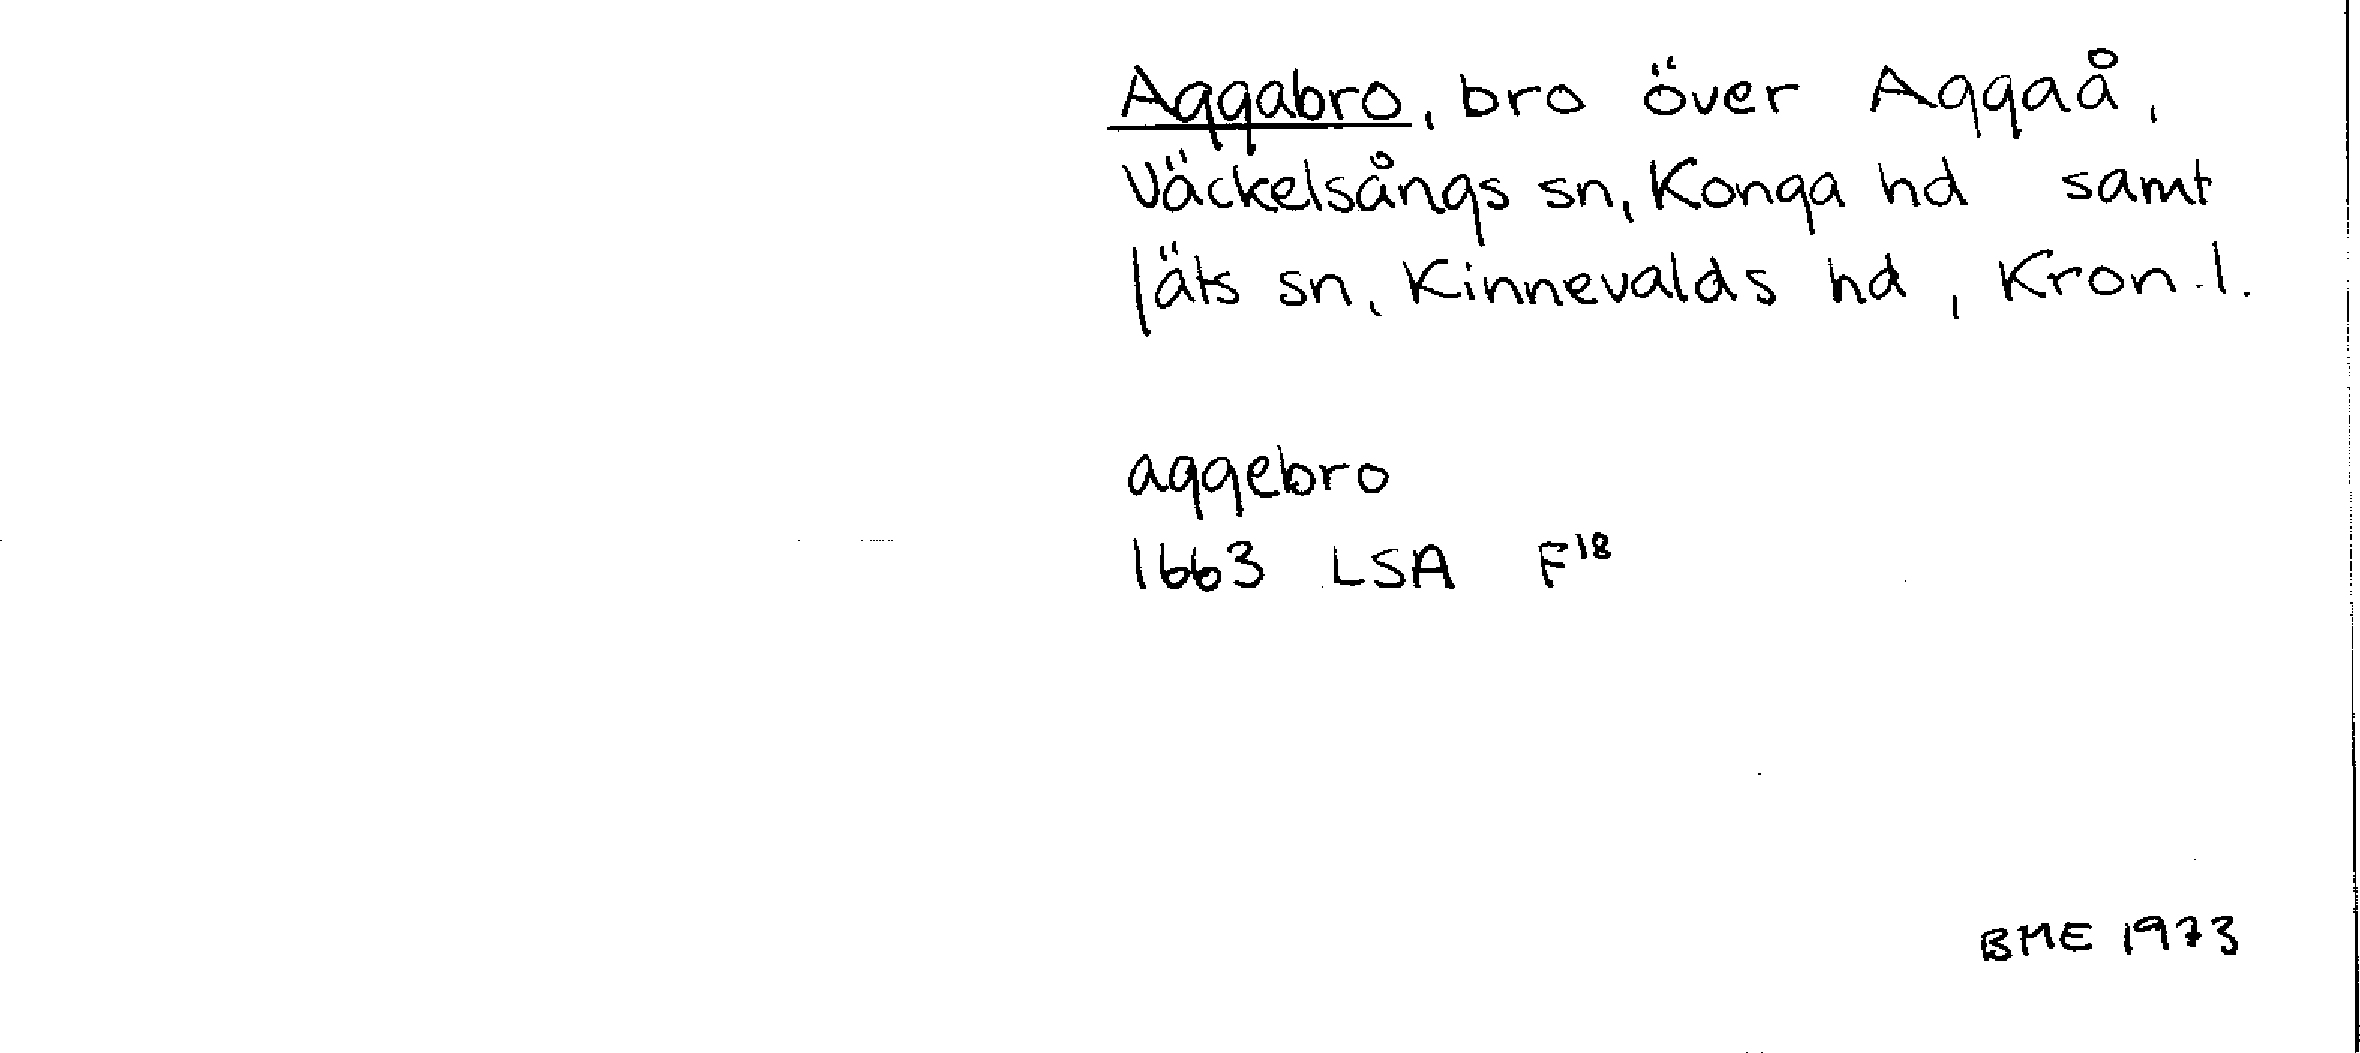 Aggabro, bro över Aggaå,
Väckelsångs sn, Konga hd samt
Jäts sn, Kinnevalds hd, Kron. l.
aggebro
1663 LSA F18
BME 1973